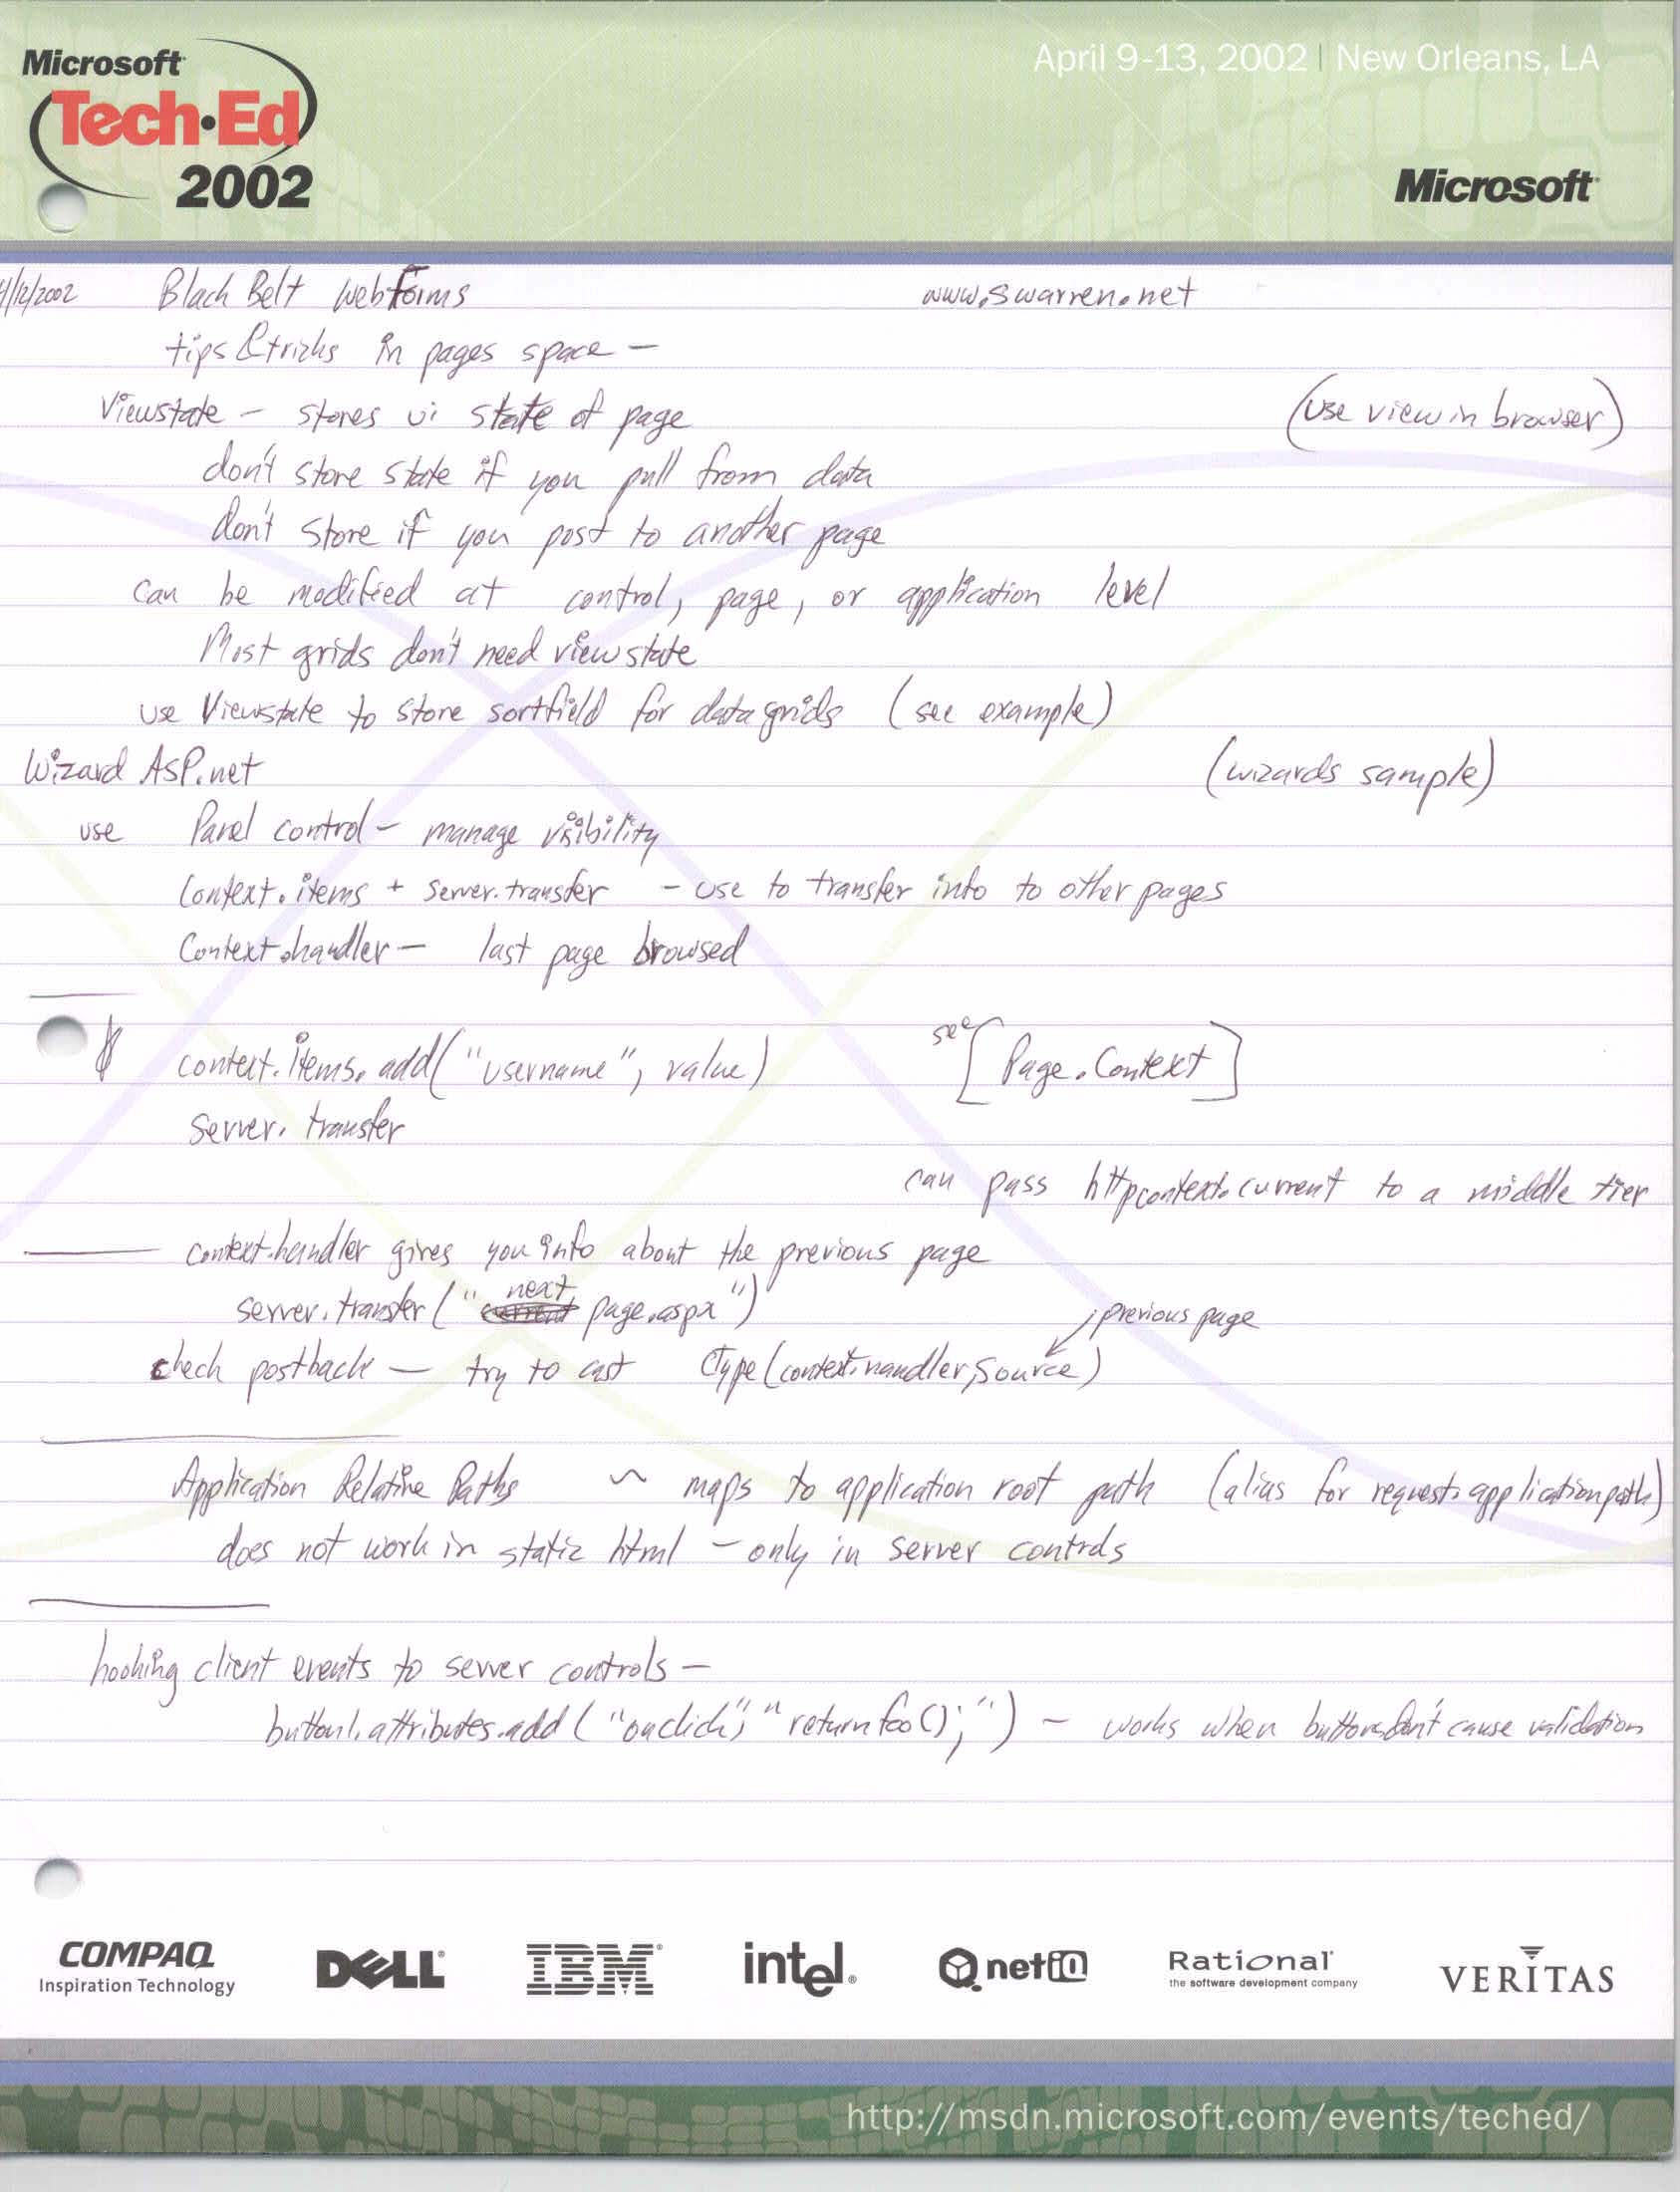 Microsoft
Tech·Ed
2002
April 9-13, 2002 | New Orleans, LA
Microsoft
4/12/2002 Black Belt WebForms www.swarren.net
tips & tricks in pages space –
Viewstate – stores ui state of page (use view in browser)
don't store state if you pull from data
don't store if you post to another page
can be modified at control, page, or application level
Most grids don't need viewstate
use Viewstate to store sortfield for datagrids (see example)
Wizard ASP.net (wizards sample)
use Panel control – manage visibility
Context.items + server.transfer – use to transfer info to other pages
Context.handler – last page browsed
context.items.add("username", value) see [Page.Context]
server.transfer
can pass httpcontext.current to a middle tier
context.handler gives you info about the previous page
server.transfer("next page.aspx")
previous page
check postback – try to cast Ctype(context.handler, source)
Application Relative Paths ~ maps to application root path (alias for request.applicationpath)
does not work in static html – only in server controls
hooking client events to server controls –
button1.attributes.add("onclick", "return foo();") – works when buttons don't cause validation
COMPAQ
Inspiration Technology
DELL
IBM
intel
netiQ
Rational
the software development company
VERITAS
http://msdn.microsoft.com/events/teched/